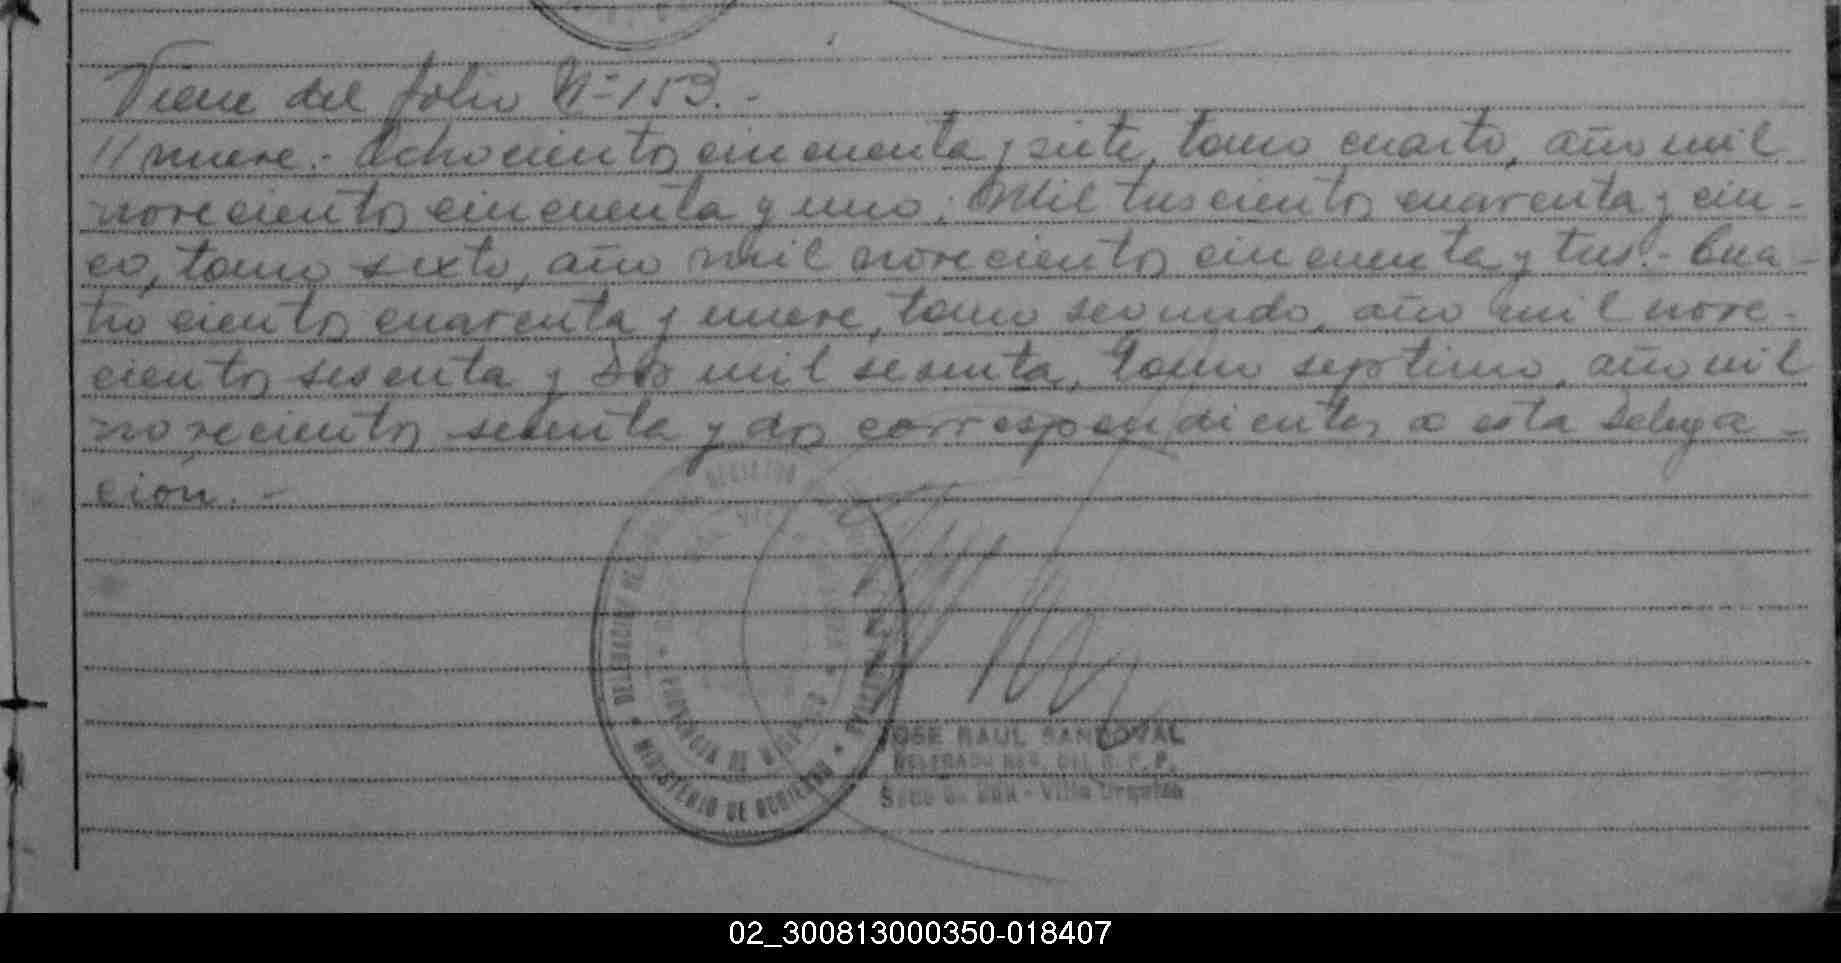 Viene del folio Nº 153.-
// nueve.- Ochocientos cincuenta y siete, tomo cuarto, año mil
novecientos cincuenta y uno; Mil trescientos cuarenta y cin-
co, tomo sexto, año mil novecientos cincuenta y tres.- Cua-
trocientos cuarenta y nueve, tomo segundo, año mil nove-
cientos sesenta y Dos mil sesenta, tomo septimo, año mil
novecientos sesenta y dos correspondientes a esta Delega-
cion.-
MINISTERIO DE GOBIERNO
PROVINCIA DE
JOSE RAUL SANDOVAL
DELEGADO REG. DEL R. P. P.
Villa Urquiza
02_300813000350-018407